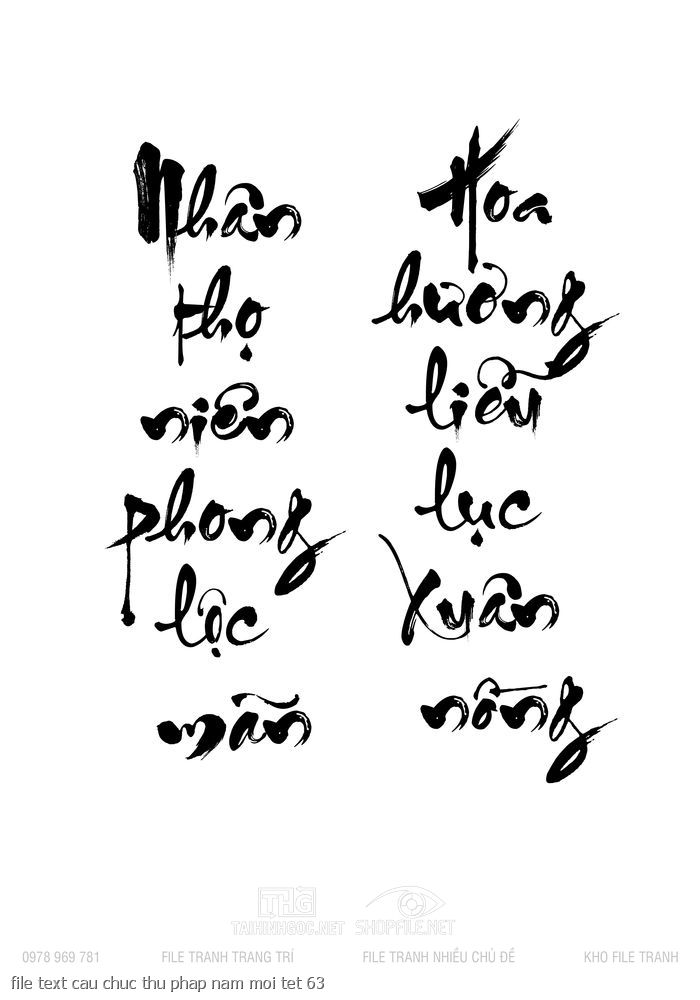 Nhân
thọ
niên
phong
lộc
mãn
Hoa
hường
liễu
lục
xuân
nồng
THG
TAIHINHGOC.NET
SHOPFILE.NET
0978 969 781
FILE TRANH TRANG TRÍ
FILE TRANH NHIỀU CHỦ ĐỀ
KHO FILE TRANH
file text cau chuc thu phap nam moi tet 63